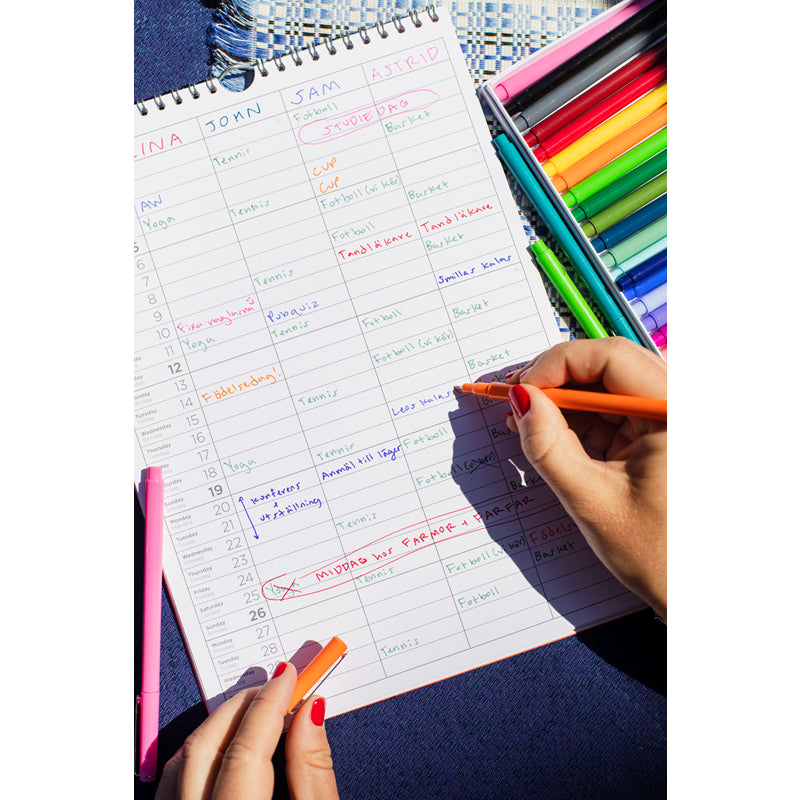 LINA JOHN SAM ASTRID
Fotboll
STUDIEDAG
Tennis Basket
CUP
AW CUP
Yoga Tennis Fotboll (vi kör) Basket
5
6 Fotboll Tandläkare
7 Tandläkare Basket
8 Tennis
9 Smillas kalas
10 Fixa naglarna Pubquiz
11 Yoga Tennis Fotboll Basket
12
13 Fotboll (vi kör)
14 Födelsedag! Basket
15 Tennis
16 Leos kalas
17 Tennis Fotboll
18 Yoga Anmäl till läger
19 Fotboll (vi kör)
20 Konferens
+
21 utställning
22 Tennis
23 MIDDAG hos FARMOR + FARFAR
24 Fotboll (vi kör) Basket
25 Yoga Tennis
26 Fotboll
27
28 Tennis
Monday
Tuesday
Wednesday
Thursday
Friday
Saturday
Sunday
Monday
Tuesday
Wednesday